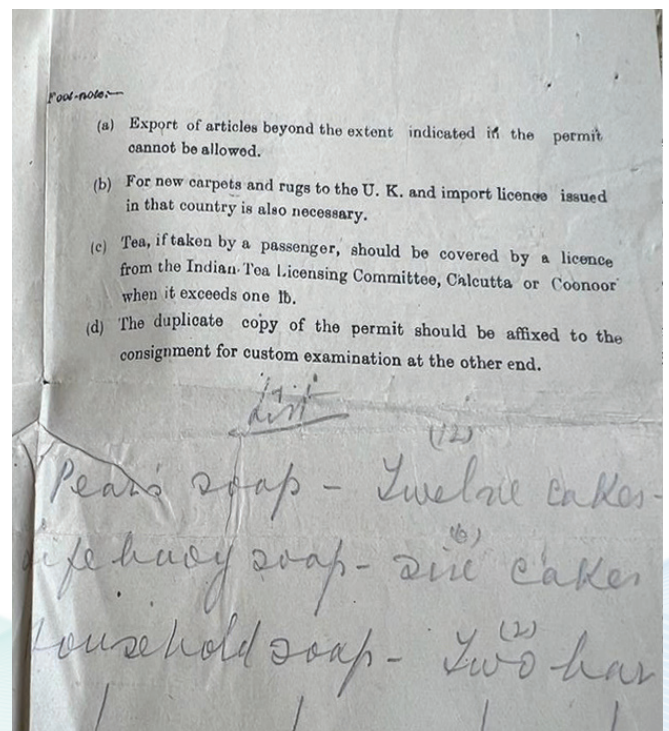 Foot-note:—
(a) Export of articles beyond the extent indicated in the permit
cannot be allowed.
(b) For new carpets and rugs to the U. K. and import licence issued
in that country is also necessary.
(c) Tea, if taken by a passenger, should be covered by a licence
from the Indian Tea Licensing Committee, Calcutta or Coonoor
when it exceeds one lb.
(d) The duplicate copy of the permit should be affixed to the
consignment for custom examination at the other end.
List
(12)
Pears soap - Twelve cakes-
(6)
lifebuoy soap - six cakes
(2)
household soap - Two bar